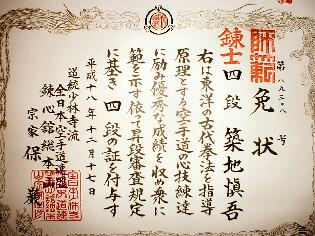 師範
免状
第八九二八号
錬士四段 築地慎吾
右は東洋の古代拳法を指導
原理とする空手道の心技練達
に励み優秀な成績を収め衆に
範を示す依て昇段審査規定
に基き四段の証を付与す
平成十八年十二月十七日
道統少林寺流
全日本空手道連盟
錬心舘総本山
宗家 保巖